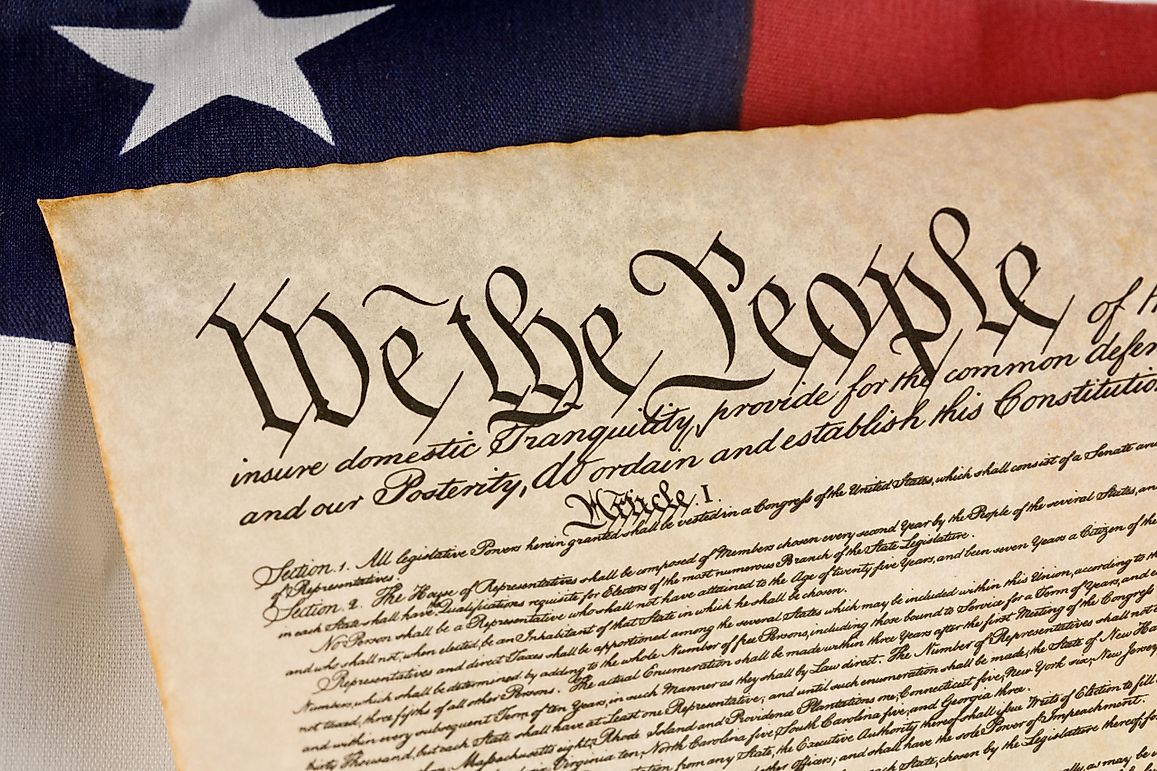 We the People of
insure domestic Tranquility, provide for the common defen
and our Posterity, do ordain and establish this Constitutio
Article. I.
Section. 1. All legislative Powers herein granted shall be vested in a Congress of the United States, which shall consist of a Senate and
of Representatives.
Section. 2. The House of Representatives shall be composed of Members chosen every second Year by the People of the several States, an
in each State shall have Qualifications requisite for Electors of the most numerous Branch of the State Legislature.
No Person shall be a Representative who shall not have attained to the Age of twenty five Years, and been seven Years a Citizen of the
and who shall not, when elected, be an Inhabitant of that State in which he shall be chosen.
Representatives and direct Taxes shall be apportioned among the several States which may be included within this Union, according to th
Numbers, which shall be determined by adding to the whole Number of free Persons, including those bound to Service for a Term of Years, and e
not taxed, three fifths of all other Persons. The actual Enumeration shall be made within three Years after the first Meeting of the Congress
and within every subsequent Term of ten Years, in such Manner as they shall by Law direct. The Number of Representatives shall not
thirty Thousand, but each State shall have at Least one Representative; and until such enumeration shall be made, the State of New Ha
Massachusetts eight, Rhode Island and Providence Plantations one, Connecticut five, New York six, New Jersey
Virginia ten, North Carolina five, South Carolina five, and Georgia three.
from any State, the Executive Authority thereof shall issue Writs of Election to fill
other Officers; and shall have the sole Power of Impeachment.
State, chosen by the Legislature thereof, fo
as may be